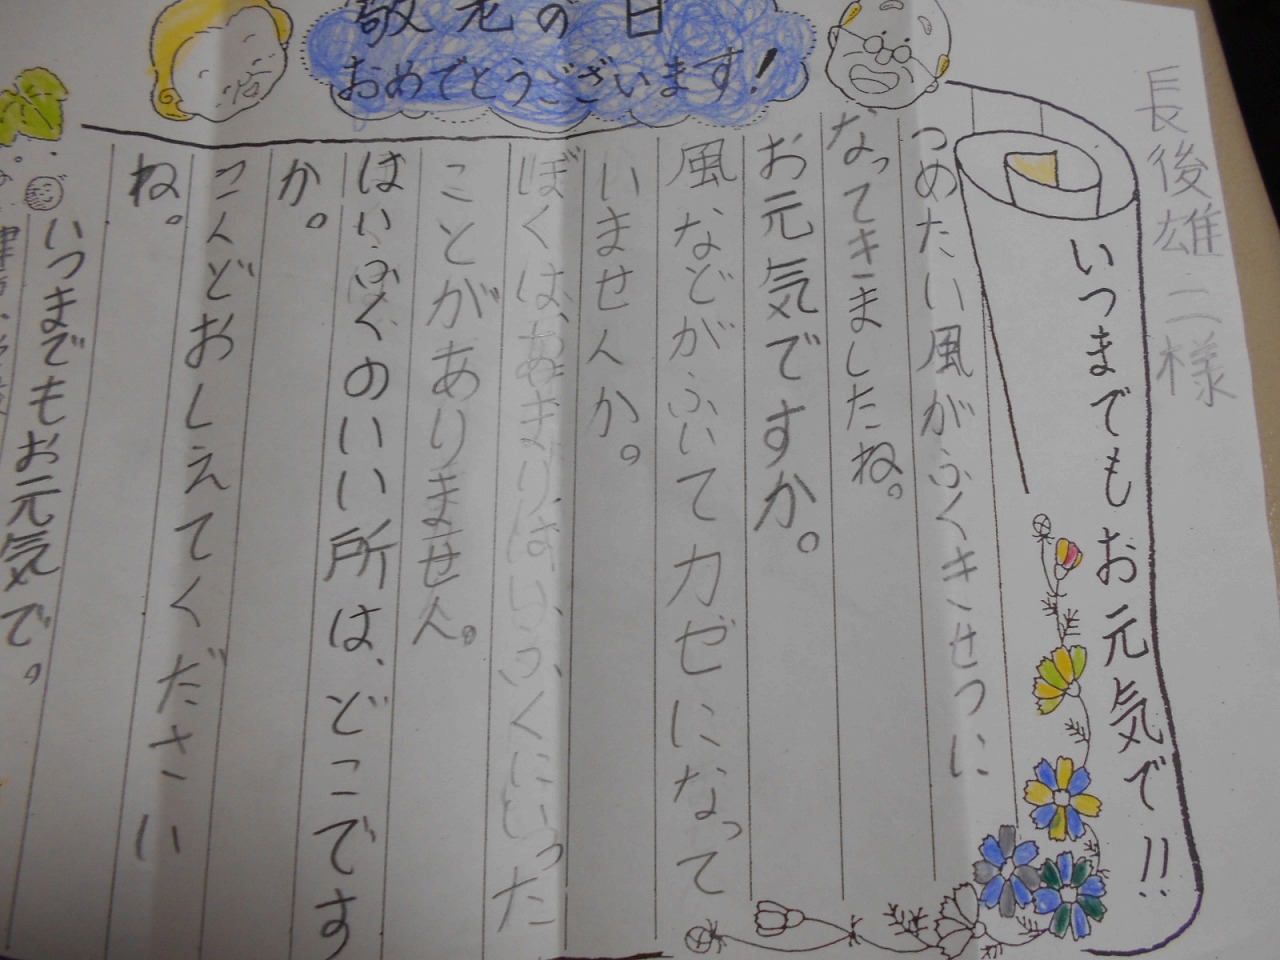 敬老の日
おめでとうございます!
長後雄二様
いつまでもお元気で!!
つめたい風がふくきせつに
なってきましたね。
お元気ですか。
風などがふいてカゼになって
いませんか。
ぼくは、あまり、はいふくにいった
ことがありません。
はいふくのいい所は、どこです
か。
こんどおしえてください
ね。
いつまでもお元気で。